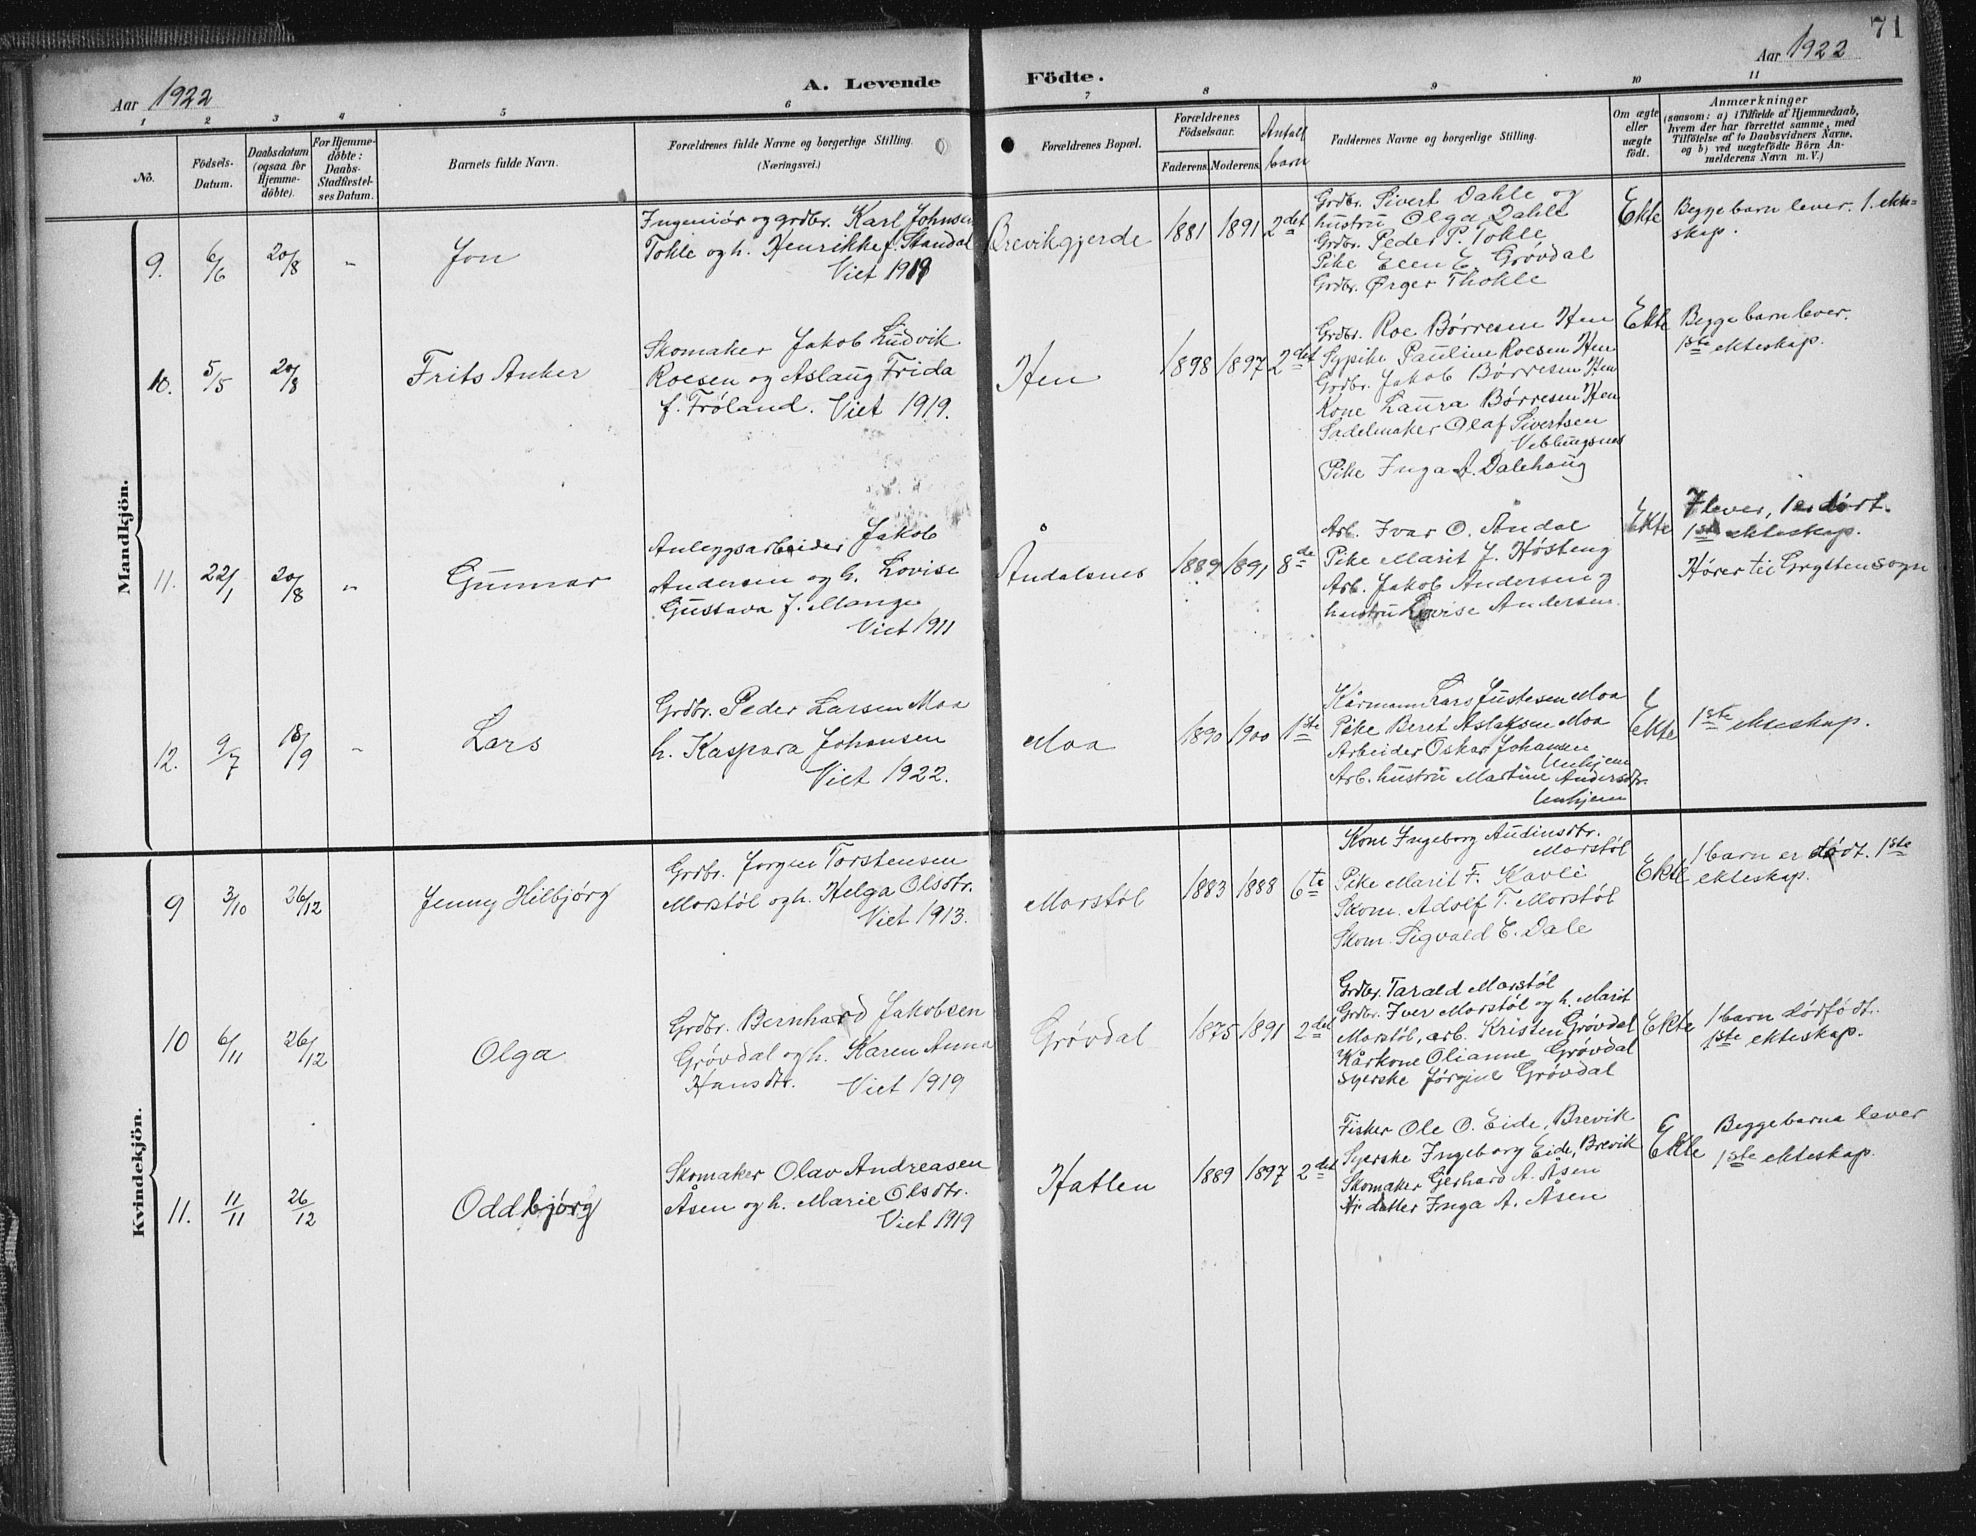 71
Aar 1922
A. Levende Födte.
Aar 1922
1 2 3 4 5 6 7 8 9 10 11
No.
Födsels-
Datum.
Daabsdatum
(ogsaa for
Hjemme-
döbte).
For Hjemme-
döbte:
Daabs-
Stadfæstel-
ses Datum.
Barnets fulde Navn.
Forældrenes fulde Navne og borgerlige Stilling.
(Næringsvei.)
Forældrenes Bopæl.
Forældrenes
Födselsaar.
Faderens. Moderens.
Antall
barn
Faddernes Navne og borgerlige Stilling.
Om ægte
eller
uægte
født.
Anmærkninger
(saasom: a) i Tilfælde af Hjemmedaab,
hvem der har forrettet samme, med
Tilföielse af to Daabsvidners Navne,
og b) ved uægtefödte Börn An-
melderens Navn m. V.)
Mandkjön.
9. 6/6 20/8 „ Jon
Ingeniör og grdbr. Karl Johnsen
Tokle og h. Henrikke f. Standal
Viet 1919
Brevikgjerde 1881 1891 2det
Grdbr. Sivert Dahle og
hustru Olga Dahle
Grdbr. Peder P. Tokle
Pike Elen E. Grøvdal
Grdbr. Ørger Thokle
Ekte
Begge barn lever. 1. ekte-
skap.
10. 5/5 20/8 Frits Anker
Skomaker Jakob Ludvik
Roesen og Aslaug Frida
f. Frøland. Viet 1919.
Hen 1898 1897 2det
Grdbr. Roe Børresen Hen
Sypike Pauline Roesen Hen
Grdbr. Jakob Børresen Hen
Kone Laura Børresen Hen
Sadelmaker Olaf Sivertsen
Veblungsnes
Pike Inga A. Dalehaug
Ekte
Begge barn lever.
1ste ekteskap.
11. 22/1 20/8 „ Gunnar
Anleggsarbeider Jakob
Andersen og h. Lovise
Gustava f. Mange
Viet 1911
Åndalsnes 1889 1891 8de
Arb. Ivar O. Andal
Pike Marit J. Høsteng
Arb. Jakob Andersen og
hustru Lovise Andersen.
Ekte
7 lever, 1 er dødt.
1ste ekteskap.
Hører til Grytten sogn
12. 9/7 18/9 „ Lars
Grdbr. Peder Larsen Moa
h. Kaspara Johansen
Viet 1922.
Moa 1890 1900 1ste
Kårmann Lars Justesen Moa
Pike Beret Aslaksen Moa
Arbeider Oskar Johansen
Unhjem
Arb. hustru Martine Andersdtr.
Unhjem
Ekte
1ste ekteskap.
Kvindekjön.
9 3/10 26/12 Jenny Hilbjörg
Grdbr. Jorgen Torstensen
Morstøl og h. Helga Olsdtr.
Viet 1913.
Morstøl 1883 1888 6te
Kone Ingeborg Audinsdtr.
Morstøl
Pike Marit F. Kavli
Skom. Adolf T. Morstøl
Skom. Sigvald E. Dale
Ekte
1 barn er dødt. 1ste
ekteskap.
10 6/11 26/12 Olga
Grdbr. Bernhard Jakobsen
Grøvdal og h. Karen Anna
Hansdtr. Viet 1919
Grøvdal 1875 1891 2det
Grdbr. Tarald Morstøl
Grdbr. Iver Morstøl og h. Marit
Morstøl, arb. Kristen Grøvdal
Kårkone Olianne Grøvdal
Syerske Jørgine Grøvdal
Ekte
1 barn dødfødt.
1ste ekteskap.
11. 11/11 26/12 Oddbjörg
Skomaker Olav Andreasen
Åsen og h. Marie Olsdtr.
Viet 1919
Hatlen 1889 1897 2det
Fisker Ole O. Eide, Brevik
Syerske Ingeborg Eide, Brevik
Skomaker Gerhard A. Åsen
datter Inga A. Åsen
Ekte
Begge barna lever
1ste ekteskap.